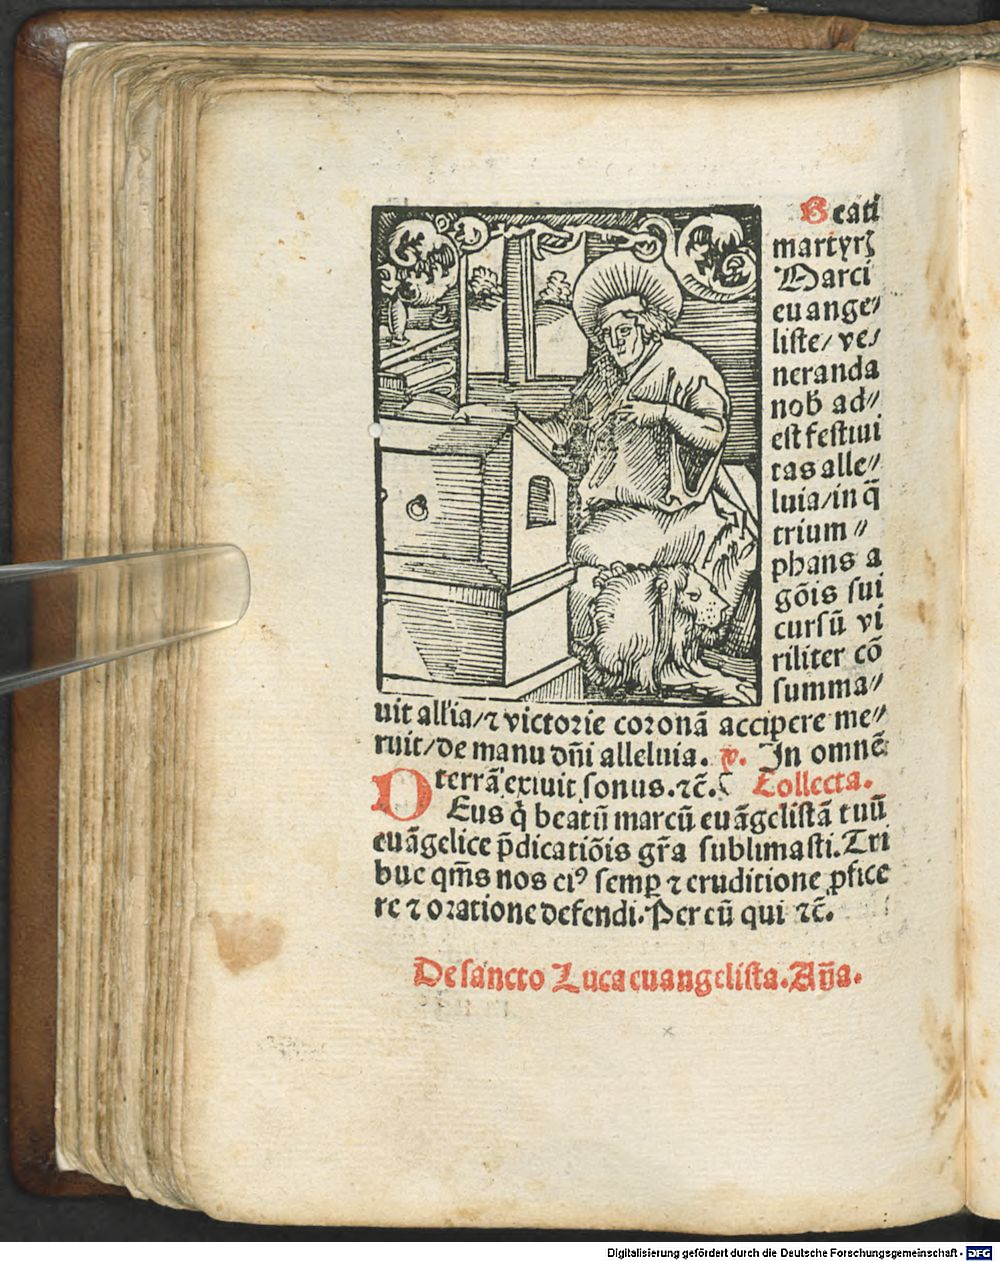 Beati
martyrꝫ
Marci
euange⸗
liste/ ve⸗
neranda
nob̄ ad⸗
est festiui
tas alle⸗
luia/in q̄
trium⸗
phans a
gōis sui
cursū vi
riliter cō
summa⸗
uit all'ia/⁊ victorie coronā accipere me⸗
ruit/de manu dn̄i alleluia. v. In omnē
terrā exiuit sonus.⁊c̄. Collecta.
DEus q̇ beatū marcū euāgelistā tuū
euāgelice p̄dicatiōis gr̄a sublimasti.Tri
bue qm̄s nos ei⁹ semꝑ ⁊ eruditione ꝓfice
re ⁊ oratione defendi.Per eū qui ⁊c̄.
De sancto Luca euangelista.An̄a.
Digitalisierung gefördert durch die Deutsche Forschungsgemeinschaft - DFG